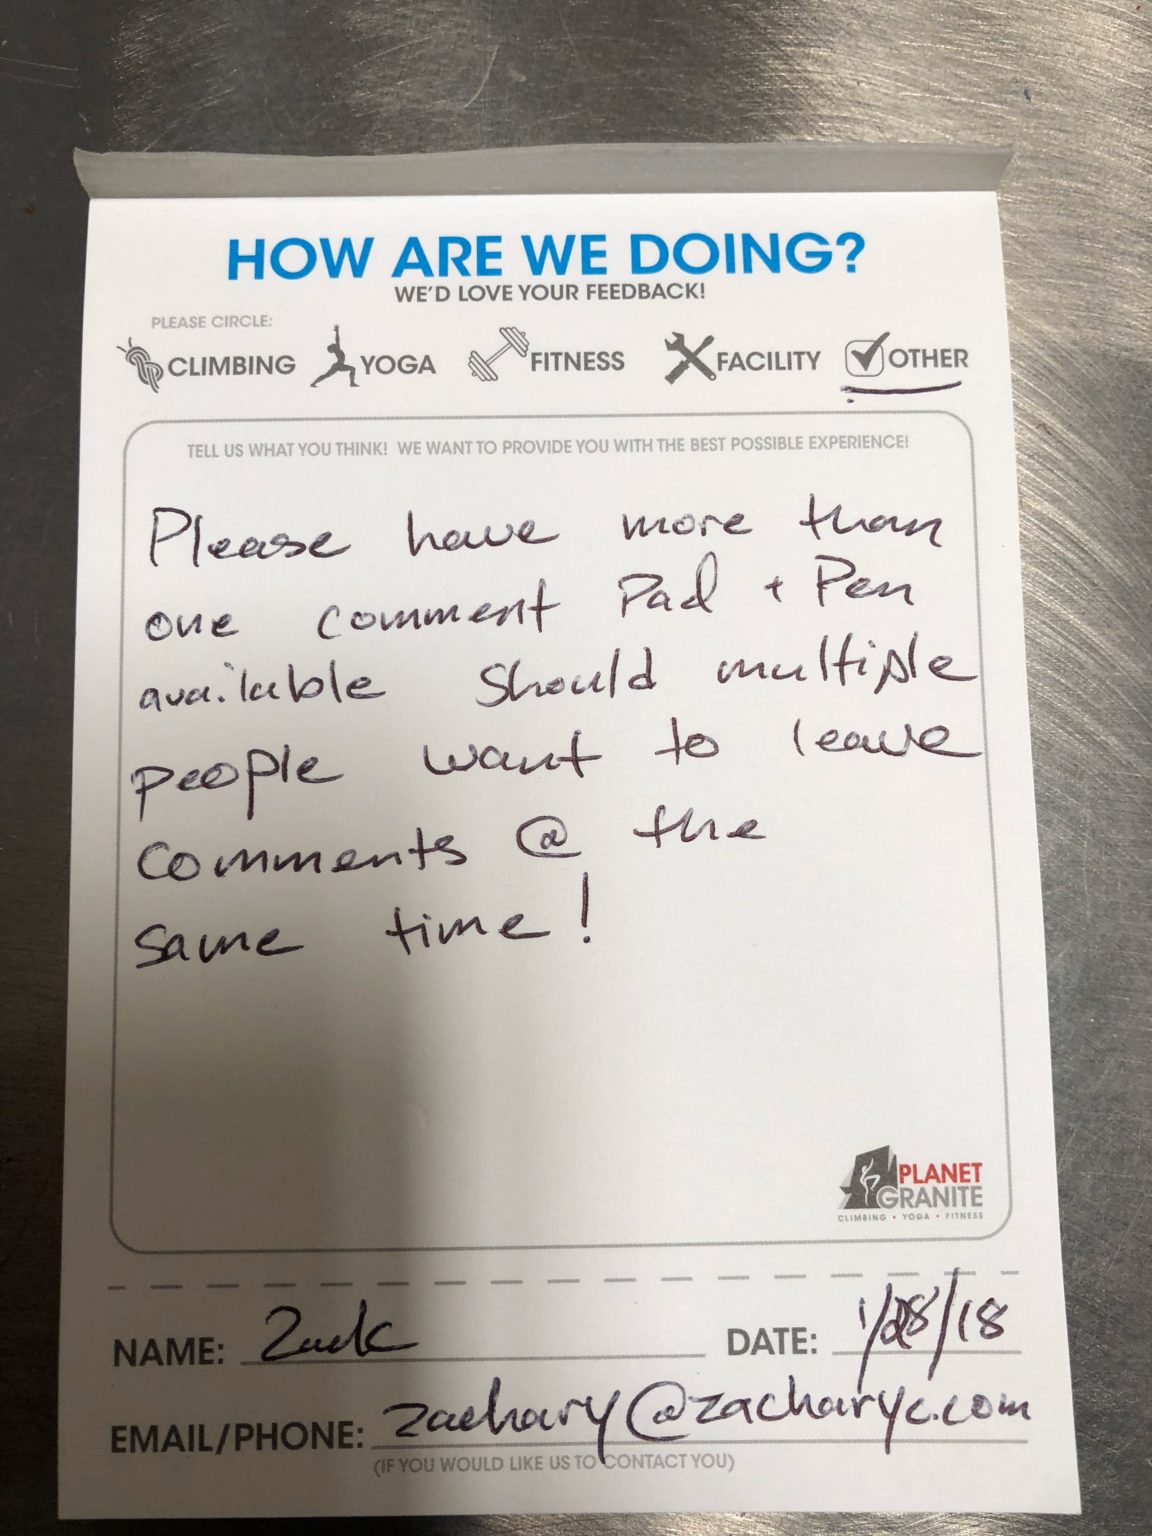 HOW ARE WE DOING?
WE'D LOVE YOUR FEEDBACK!
PLEASE CIRCLE:
CLIMBING YOGA FITNESS FACILITY OTHER
TELL US WHAT YOU THINK! WE WANT TO PROVIDE YOU WITH THE BEST POSSIBLE EXPERIENCE!
Please have more than
one comment Pad + Pen
available should multiple
people want to leave
comments @ the
same time!
PLANET
GRANITE
CLIMBING • YOGA • FITNESS
NAME: Zack DATE: 1/28/18
EMAIL/PHONE: zachary@zacharyc.com
(IF YOU WOULD LIKE US TO CONTACT YOU)